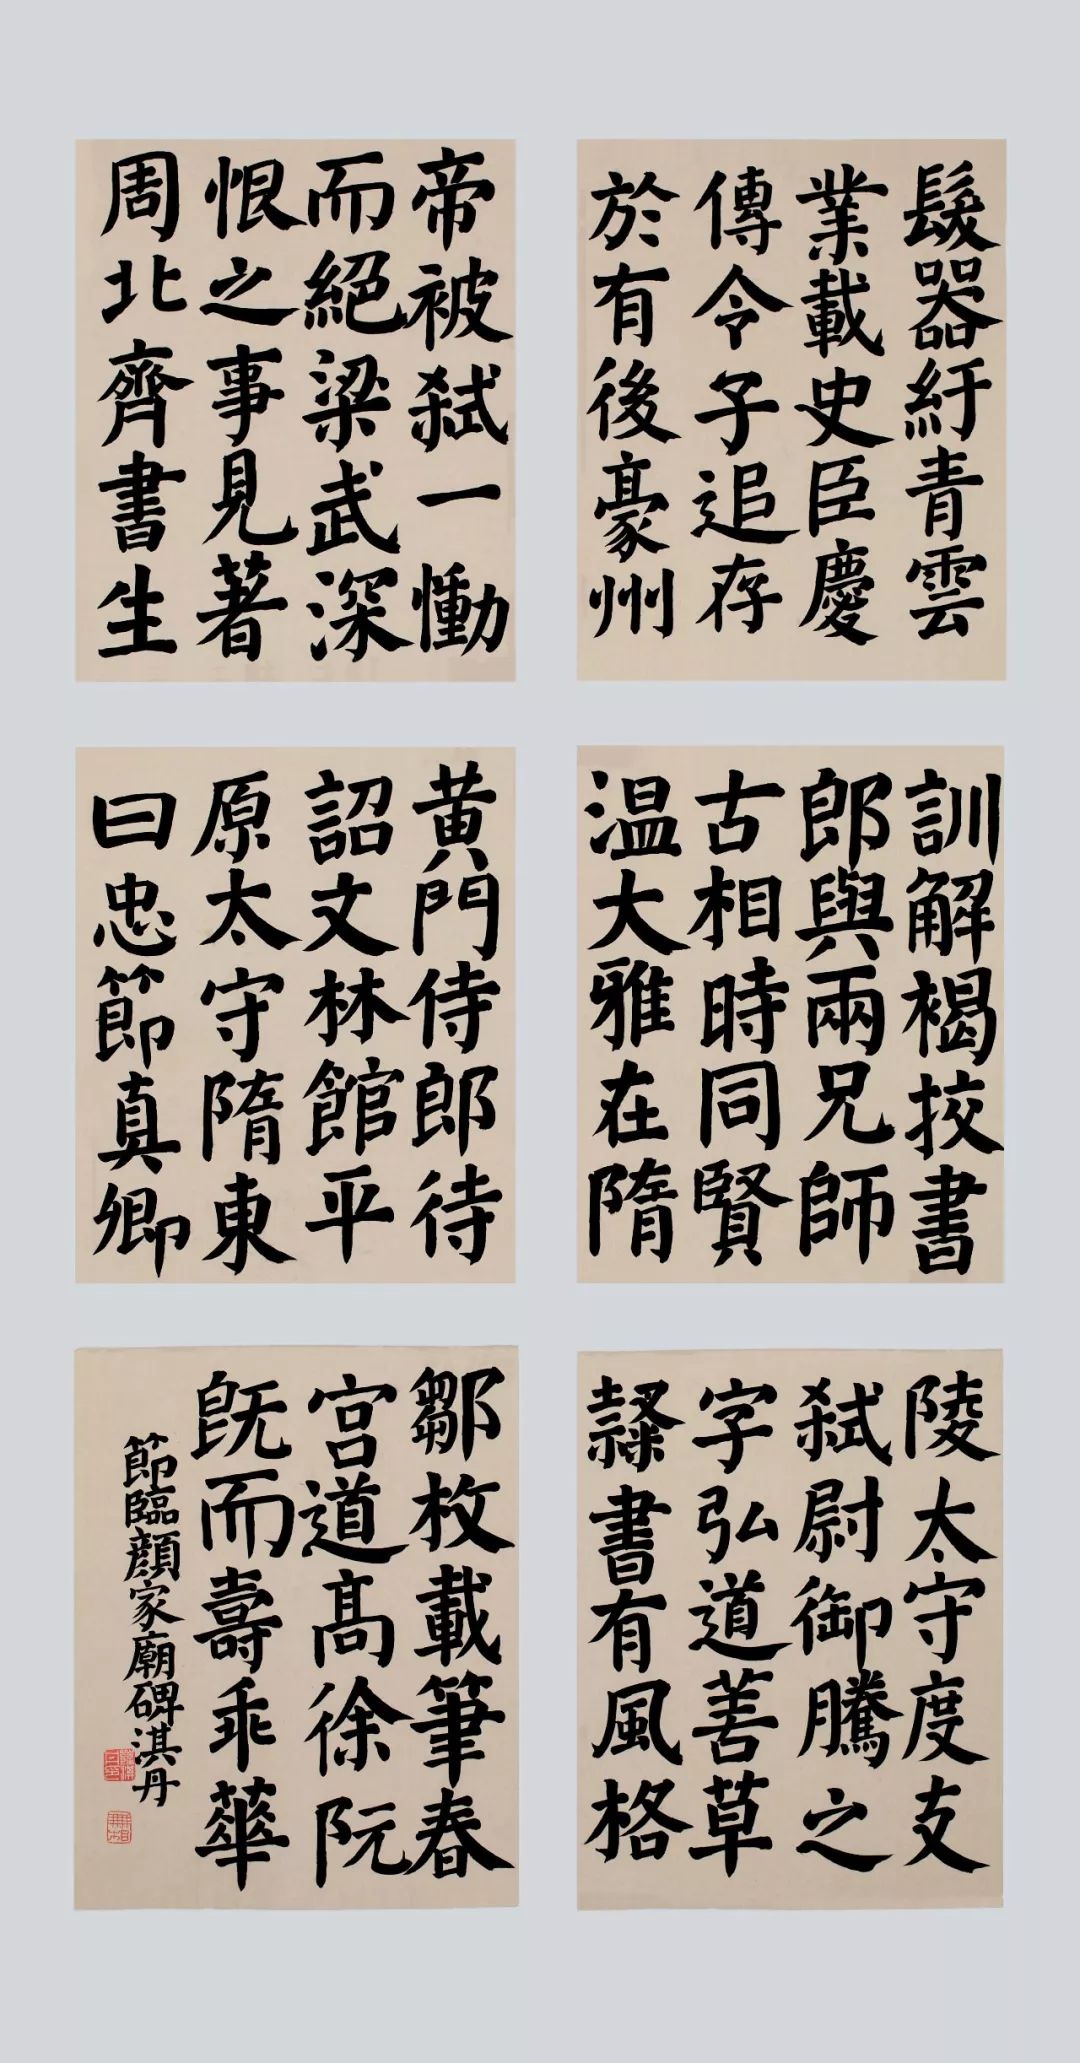 髮器紆青雲
業載史臣慶
傳令子追存
於有後豪州
帝被弑一慟
而絕梁武深
恨之事見著
周北齊書生
訓解褐挍書
郎與兩兄師
古相時同賢
温大雅在隋
黄門侍郎待
詔文林館平
原太守隋東
曰忠節真卿
陵太守度支
弑尉御騰之
字弘道善草
隸書有風格
鄒枚載筆春
宫道髙徐阮
既而壽乖華
節臨顔家廟碑淇丹